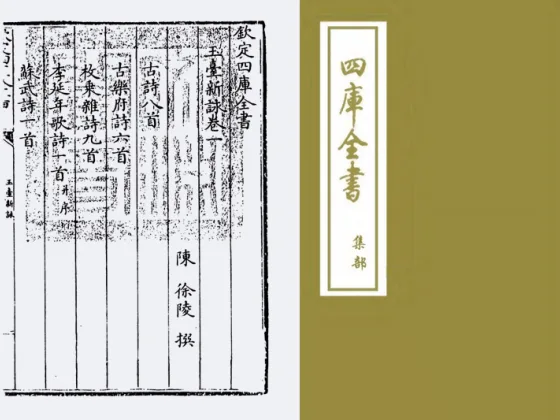 欽定四庫全書
玉臺新詠卷一
陳 徐陵 撰
古詩八首
古樂府詩六首
枚乘雜詩九首
李延年歌詩一首并序
蘇武詩一首
玉臺新詠
四庫全書
集部